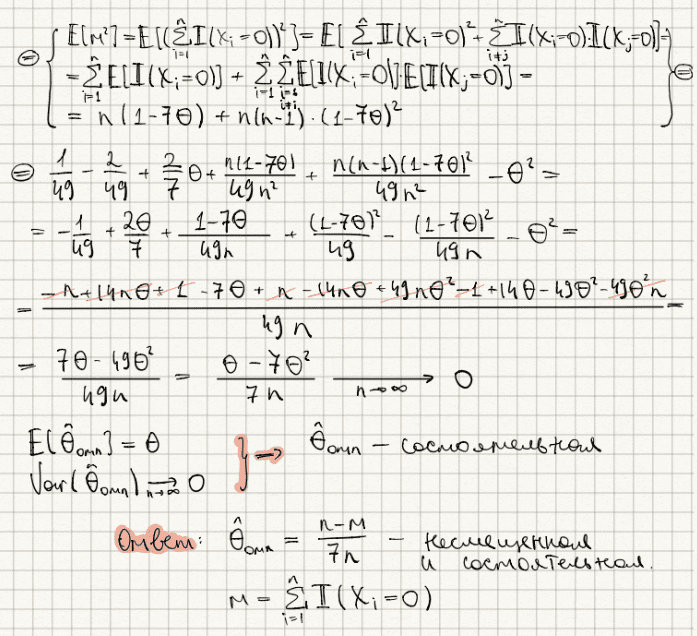 ⊜ { E[M²] = E[(∑ⁿᵢ₌₁ 𝕀(Xᵢ=0))²] = E[∑ⁿᵢ₌₁ 𝕀(Xᵢ=0)² + ∑ⁿᵢ≠ⱼ 𝕀(Xᵢ=0)𝕀(Xⱼ=0)] =
= ∑ⁿᵢ₌₁ E[𝕀(Xᵢ=0)] + ∑ⁿᵢ₌₁ ∑ⁿ E[𝕀(Xᵢ=0)]·E[𝕀(Xⱼ=0)] =
= n(1-7θ) + n(n-1)·(1-7θ)² } ⊜
⊜ 1/49 - 2/49 + 2/7 θ + n(1-7θ)/49n² + n(n-1)(1-7θ)²/49n² - θ² =
= -1/49 + 2θ/7 + 1-7θ/49n + (1-7θ)²/49 - (1-7θ)²/49n - θ² =
= -n+14nθ+1-7θ+n-14nθ+49nθ²-1+14θ-49θ²-49θ²n/49n =
= 7θ-49θ²/49n = θ-7θ²/7n →n→∞ 0
E[θ̂омп] = θ
Var(θ̂омп) →n→∞ 0 } ⇒ θ̂омп - состоятельная
Ответ: θ̂омп = n-M/7n - несмещенная
и состоятельная.
M = ∑ⁿᵢ₌₁ 𝕀(Xᵢ=0)